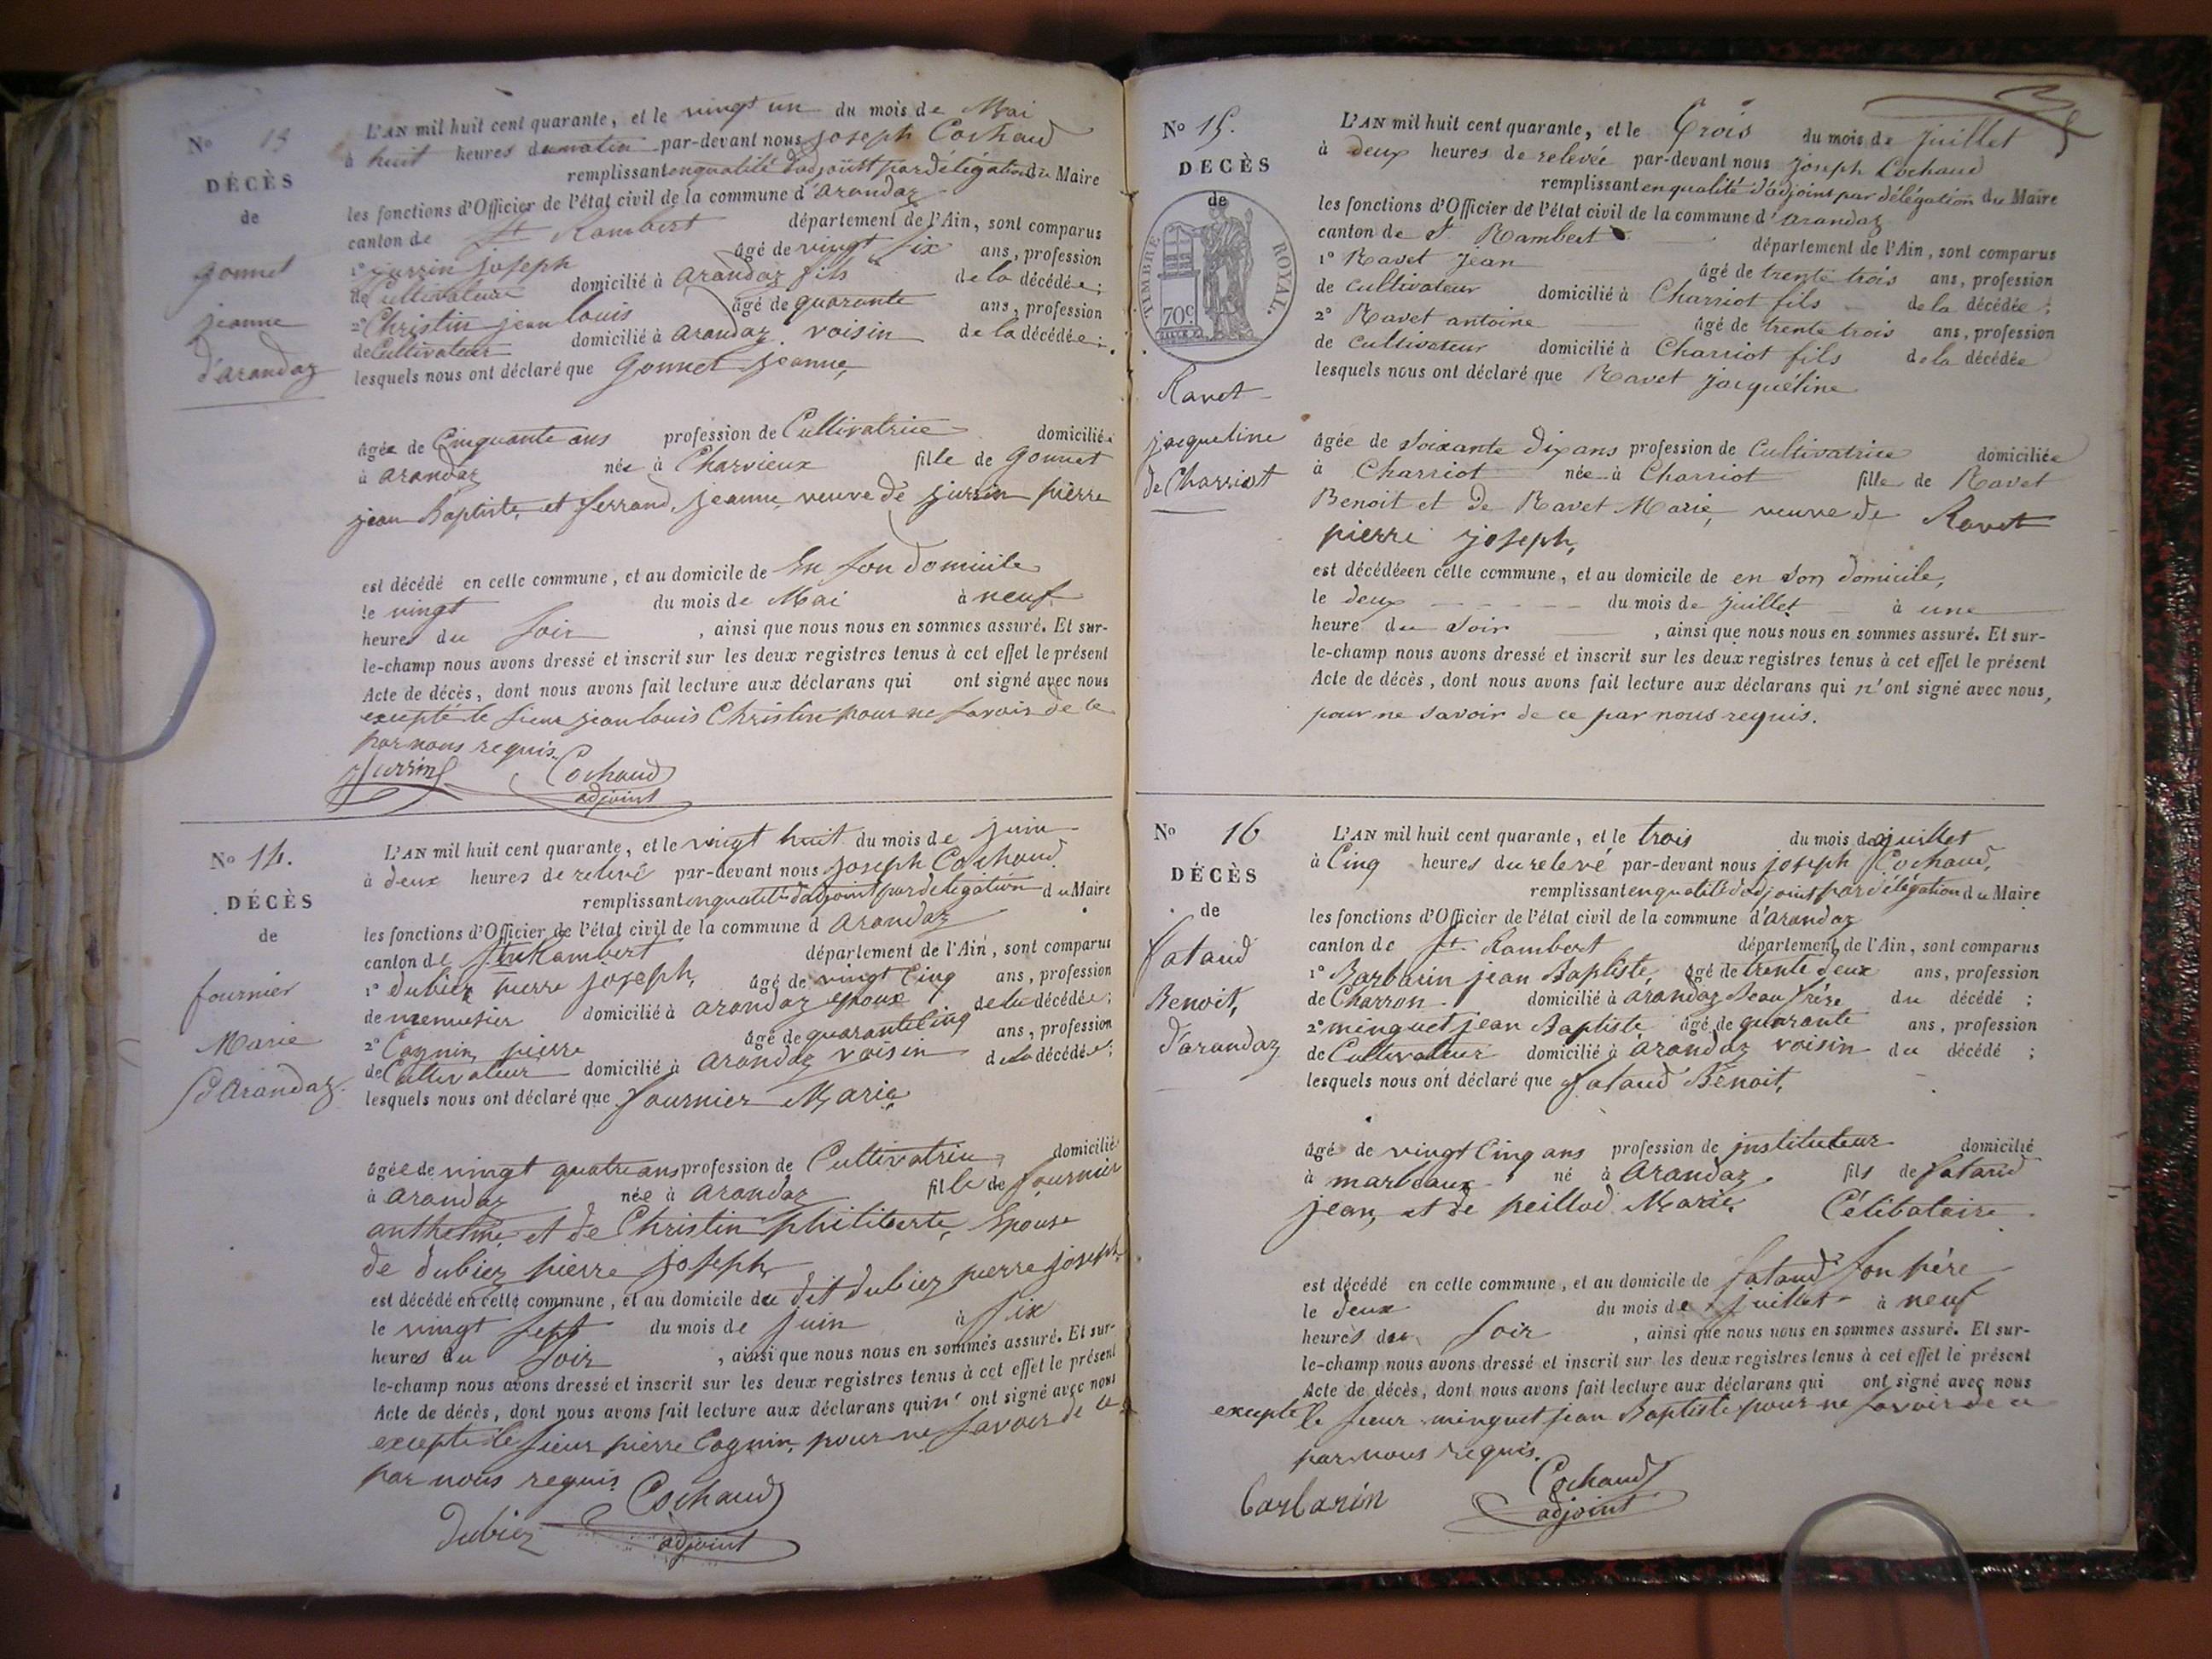 No 13
DÉCÈS
de
Gonnet
jeanne
d'arandaz
L'AN mil huit cent quarante, et le vingt un du mois de Mai
à huit heures du matin par-devant nous joseph Cochaud
remplissant en qualité d'adjoint par délégation du Maire
les fonctions d'Officier de l'état civil de la commune d'arandaz
canton de St Rambert département de l'Ain, sont comparus
1° jurrin joseph âgé de vingt six ans, profession
de Cultivateur domicilié à arandaz fils de la décédée;
2° Christin jean louis âgé de quarante ans, profession
de Cultivateur domicilié à arandaz voisin de la décédée;
lesquels nous ont déclaré que Gonnet jeanne,
âgée de Cinquante ans profession de Cultivatrice domiciliée
à arandaz née à Charvieux fille de Gonnet
jean Baptiste, et ferrand jeanne, veuve de jurrin pierre
est décédé en celle commune, et au domicile de En son domicile
le vingt du mois de Mai à neuf
heures du soir, ainsi que nous nous en sommes assuré. Et sur-
le-champ nous avons dressé et inscrit sur les deux registres tenus à cet effet le présent
Acte de décès, dont nous avons fait lecture aux déclarans qui ont signé avec nous
excepté le sieur jean louis Christin pour ne savoir de ce
par nous requis.
Jurrin Cochaud
adjoint
No 14.
DÉCÈS
de
fournier
Marie
d'Arandaz.
L'AN mil huit cent quarante, et le vingt huit du mois de juin
à deux heures de relevé par-devant nous joseph Cochaud
remplissant en qualité d'adjoint par délégation du Maire
les fonctions d'Officier de l'état civil de la commune d arandaz
canton de St Rambert département de l'Ain, sont comparus
1° dubiez pierre joseph, âgé de vingt Cinq ans, profession
de menusier domicilié à arandaz époux de la décédée;
2° Cognin pierre âgé de quarante Cinq ans, profession
de Cultivateur domicilié à arandaz voisin de la décédée;
lesquels nous ont déclaré que fournier Marie
âgée de vingt quatre ans profession de Cultivatrice, domicilié
à arandaz née à arandaz fille de fournier
anthelme, et de Christin philiberte, Epouse
de dubiez pierre joseph
est décédé en celle commune, et au domicile du dit dubiez pierre joseph
le vingt sept du mois de juin à six
heures du soir, ainsi que nous nous en sommes assuré. Et sur-
le-champ nous avons dressé et inscrit sur les deux registres tenus à cet effet le présent
Acte de décès, dont nous avons fait lecture aux déclarans qui n' ont signé avec nous
excepté le sieur pierre Cognin, pour ne savoir de ce
par nous requis
Cochaud
dubiez adjoint
No 15.
DÉCÈS
de
TIMBRE ROYAL.
70c
Ravet
jacqueline
de Charriot
L'AN mil huit cent quarante, et le Trois du mois de juillet
à deux heures de relevée par-devant nous joseph Cochaud
remplissant en qualité d'adjoint par délégation du Maire
les fonctions d'Officier de l'état civil de la commune d'arandaz
canton de St Rambert département de l'Ain, sont comparus
1° Ravet jean âgé de trente trois ans, profession
de cultivateur domicilié à Charriot fils de la décédée;
2° Ravet antoine âgé de trente trois ans, profession
de cultivateur domicilié à Charriot fils de la décédée
lesquels nous ont déclaré que Ravet jacquéline
âgée de soixante dix ans profession de Cultivatrice domiciliée
à Charriot née à Charriot fille de Ravet
Benoit et de Ravet Marie, veuve de Ravet
pierre joseph,
est décédée en celle commune, et au domicile de en son domicile,
le deux du mois de juillet à une
heure du soir, ainsi que nous nous en sommes assuré. Et sur-
le-champ nous avons dressé et inscrit sur les deux registres tenus à cet effet le présent
Acte de décès, dont nous avons fait lecture aux déclarans qui n'ont signé avec nous,
pour ne savoir de ce par nous requis.
No 16
DÉCÈS
de
fataud
Benoit,
d'arandaz
L'AN mil huit cent quarante, et le trois du mois de juillet
à Cinq heures du relevé par-devant nous joseph Cochaud,
remplissant en qualité d'adjoint par délégation du Maire
les fonctions d'Officier de l'état civil de la commune d'arandaz
canton de St Rambert département de l'Ain, sont comparus
1° Barbarin jean Baptiste, âgé de trente deux ans, profession
de Charron domicilié à arandaz beau frère du décédé;
2° minguet jean Baptiste âgé de quarante ans, profession
de Cultivateur domicilié à arandaz voisin du décédé;
lesquels nous ont déclaré que fataud Benoit,
âgé de vingt Cinq ans profession de jnstituteur domicilié
à né à arandaz fils de fataud
jean, et de peillod Marie, Célibataire.
est décédé en celle commune, et au domicile de fataud son père
le deux du mois de juillet à neuf
heures du soir, ainsi que nous nous en sommes assuré. Et sur-
le-champ nous avons dressé et inscrit sur les deux registres tenus à cet effet le présent
Acte de décès, dont nous avons fait lecture aux déclarans qui ont signé avec nous
excepté le sieur minguet jean Baptiste pour ne savoir de ce
par nous requis.
Barbarin Cochaud
adjoint